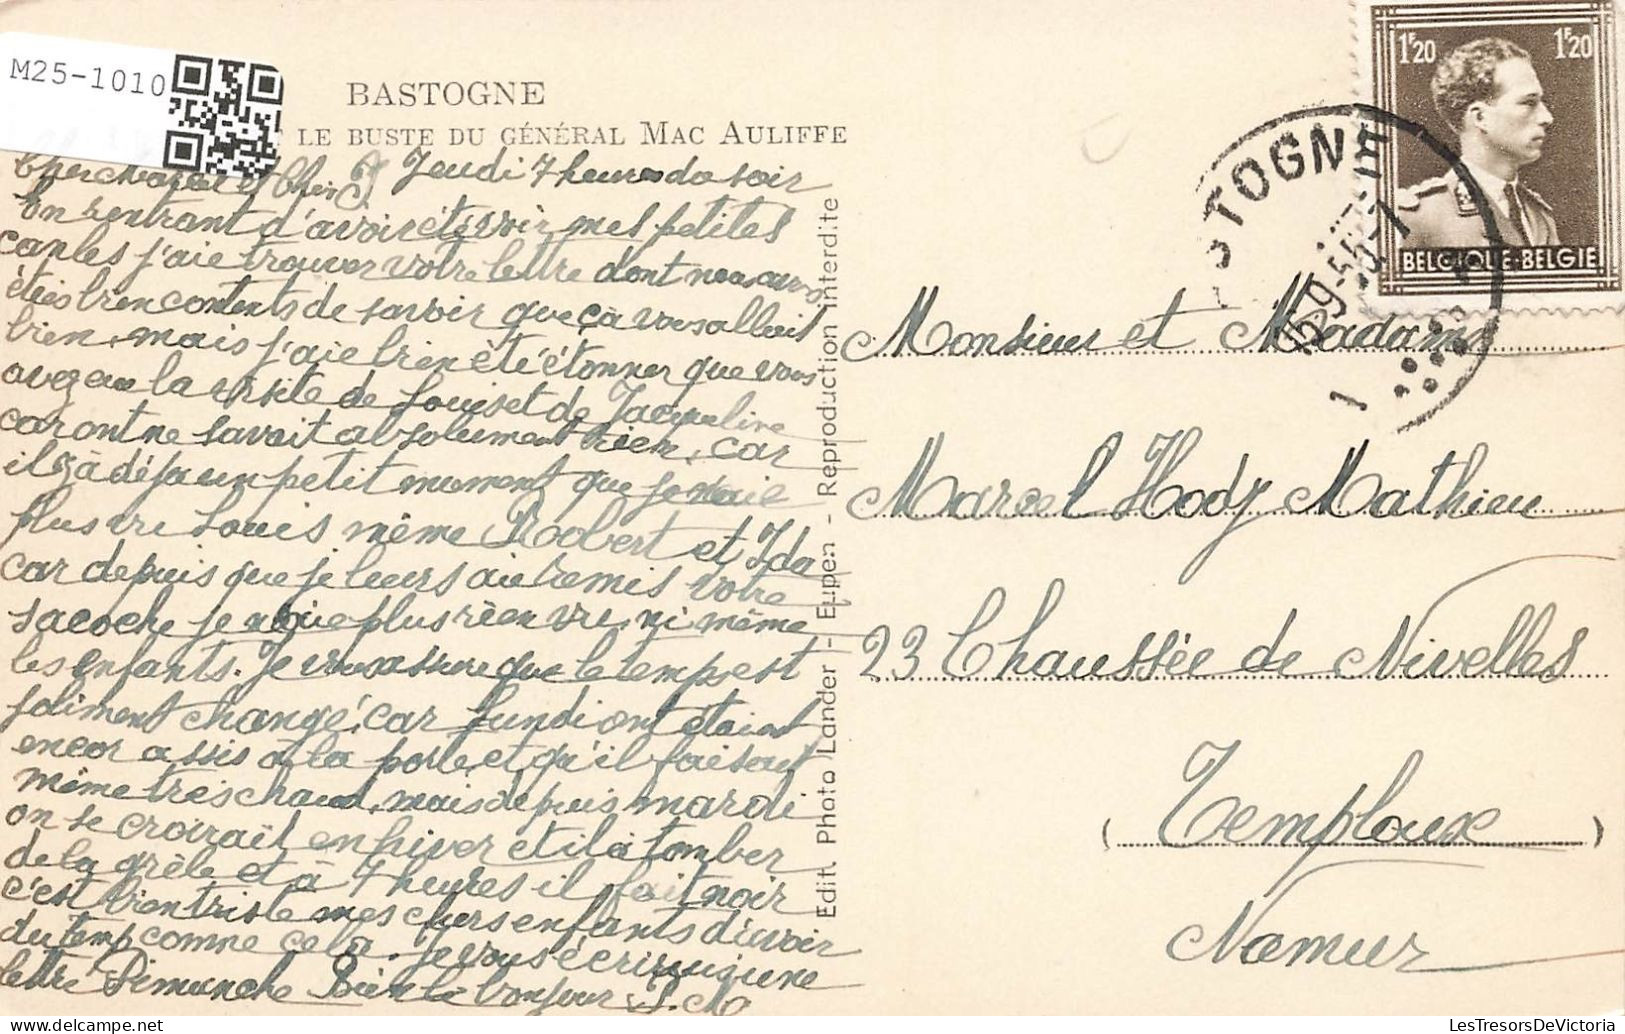 M25-1010
BASTOGNE
LE BUSTE DU GÉNÉRAL MAC AULIFFE
Cher et Cher Jeudi 7 heures du soir
on rentrant d'avoir étés voir mes petites
canles j'aie trouver votre lettre dont nous avons
étés bien contents de savoir que çà vous allait
bien, mais j'aie bien été étonner que vous
avez eu la visite de Louis et de Jacqueline
car ont ne savait absolument rien, car
il y à déja un petit moment que je naie
plus vu Louis même Robert et Ida
car depuis que je leurs aie remis votre
sacoche je naie plus rien vu, ni même
les enfants. Je vous assure que le temps est
joliment changé, car Lundi ont étaint
encor assis a la porte et qu'il faisait
même très chaud, mais depuis mardi
on se croirait en hiver et il à tomber
de la grêle et à 7 heures il fait noir
c'est bien triste mes chers enfants d'avoir
du temp comme cela. je vous écrirais une
lettre Dimanche Bien le bonjour
Edit. Photo Lander - Eupen - Reproduction interdite
1F20 1F20
BELGIQUE-BELGIE
STOGNE
Monsieur et Madame
Marcel Hody Mathieu
23 Chaussée de Nivelles
(Temploux)
Namur
LesTresorsDeVictoria